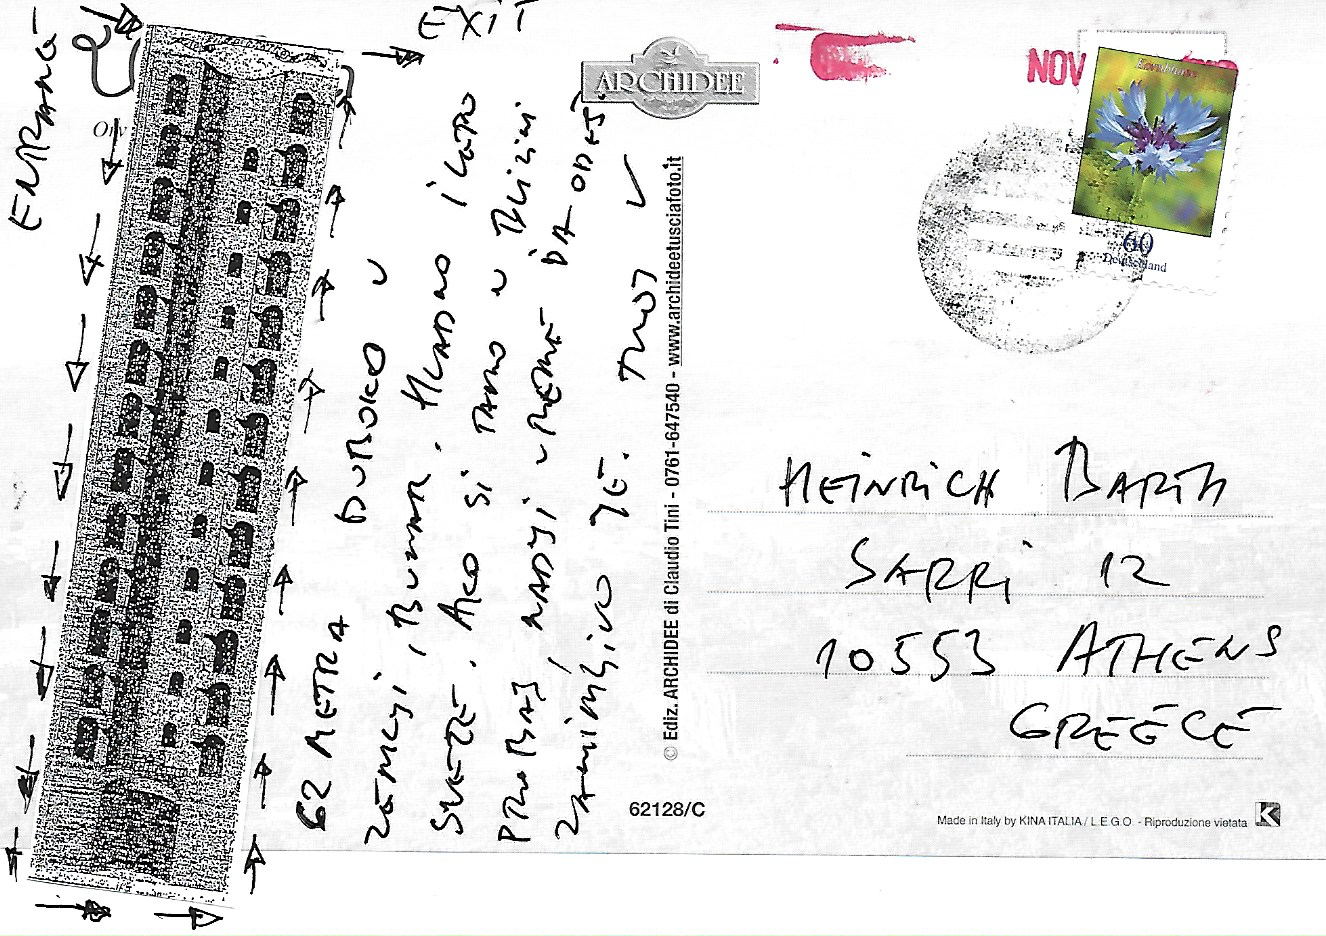 ENTRANCE
EXIT
Orv
62 METRA DUBOKO U
ZEMLJI, BUNAR. HLADNO I LEPO
SVEŽE. AKO SI TAMO U BLIZINI
PROBAJ NADJI VREME DA ODEŠ,
ZANIMLJIVO JE. TVOJ V
ARCHIDEE
© Ediz. ARCHIDEE di Claudio Tini - 0761-647540 - www.archideetusciafoto.it
62128/C
NOV
60
Deutschland
HEINRICH BARTH
SARRI 12
10553 ATHENS
GREECE
Made in Italy by KINA ITALIA / L.E.G.O. - Riproduzione vietata
K